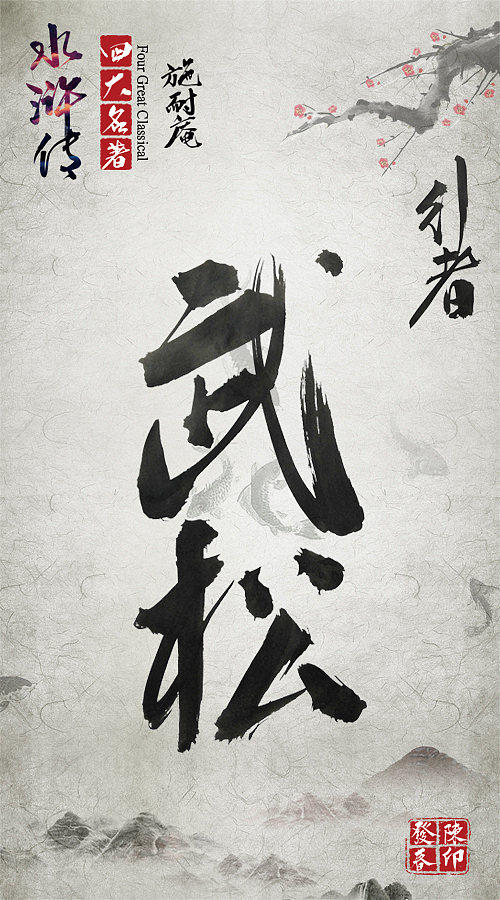 水浒传
四大名著
Four Great Classical
施耐庵
行者
武松
陳印
發春